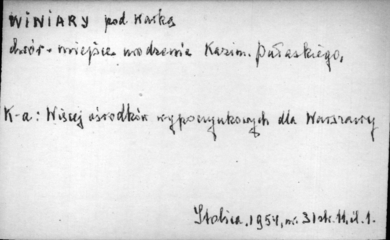 WINIARY pod Warką
dwór - miejsce urodzenia Kazim. Pułaskiego,
K-a: Więcej ośrodków wypoczynkowych dla Warszawy
Stolica, 1954, nr. 31 str. 11, il. 1.